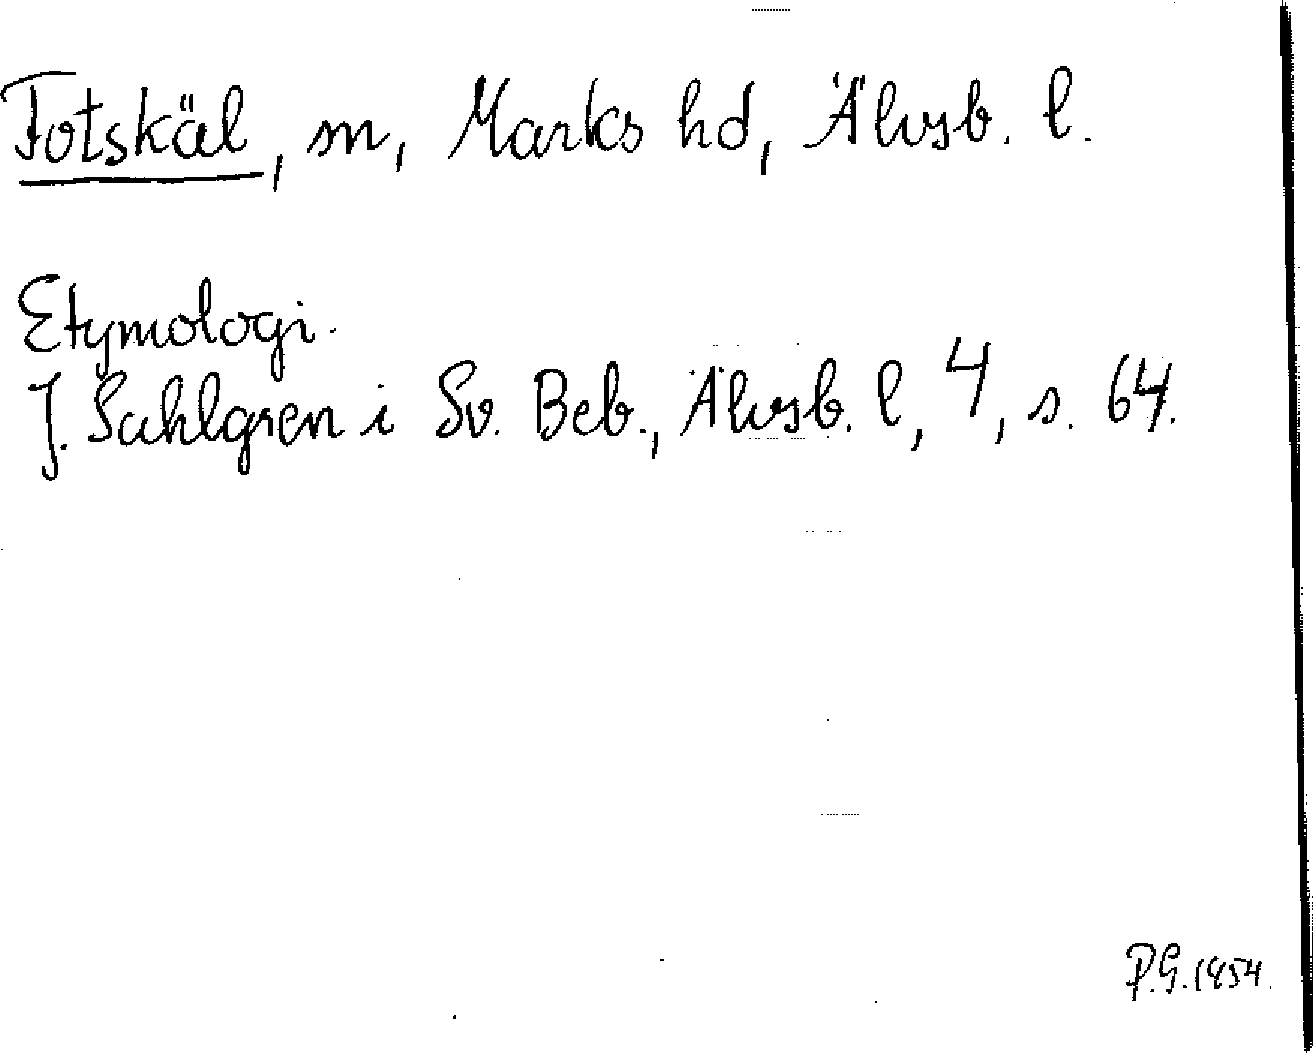 Fotskäl, sn, Marks hd, Älvsb. l.
Etymologi.
J. Sahlgren i Sv. Beb., Älvsb. l, 4, s. 64.
P.G. 1954.